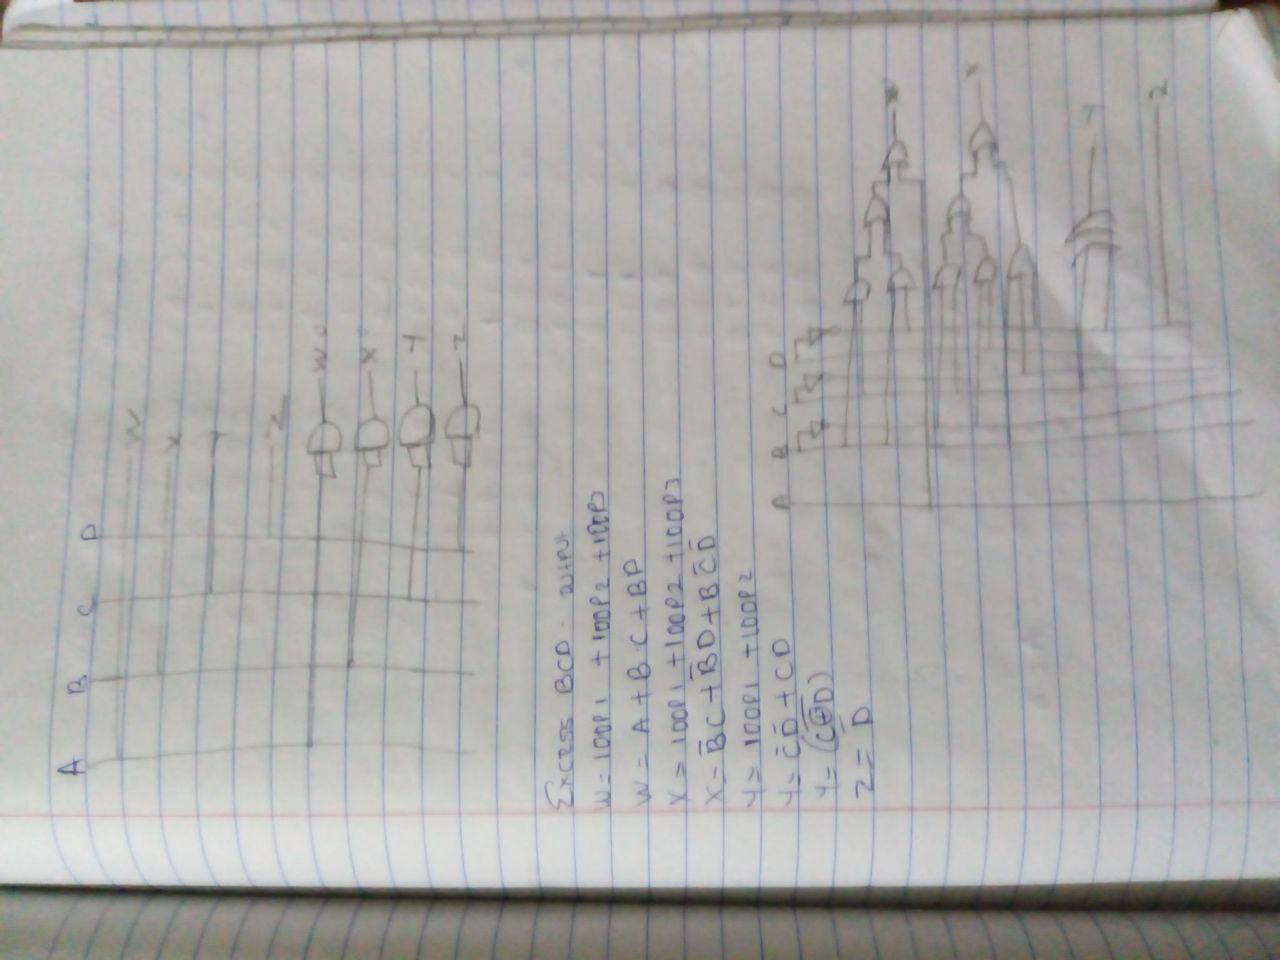 A B C D
W
X
Y
Z
W
X
Y
Z
Excess BCD output
W = 100P1 + 100P2 + 100P3
W = A + B C + BD
X = 100P1 + 100P2 + 100P3
X = B̅C + B̅D + BC̅D̅
Y = 100P1 + 100P2
Y = C̅D̅ + CD
Y = (C⊕D)̅
Z = D̅
A B C D
X
Y
Z